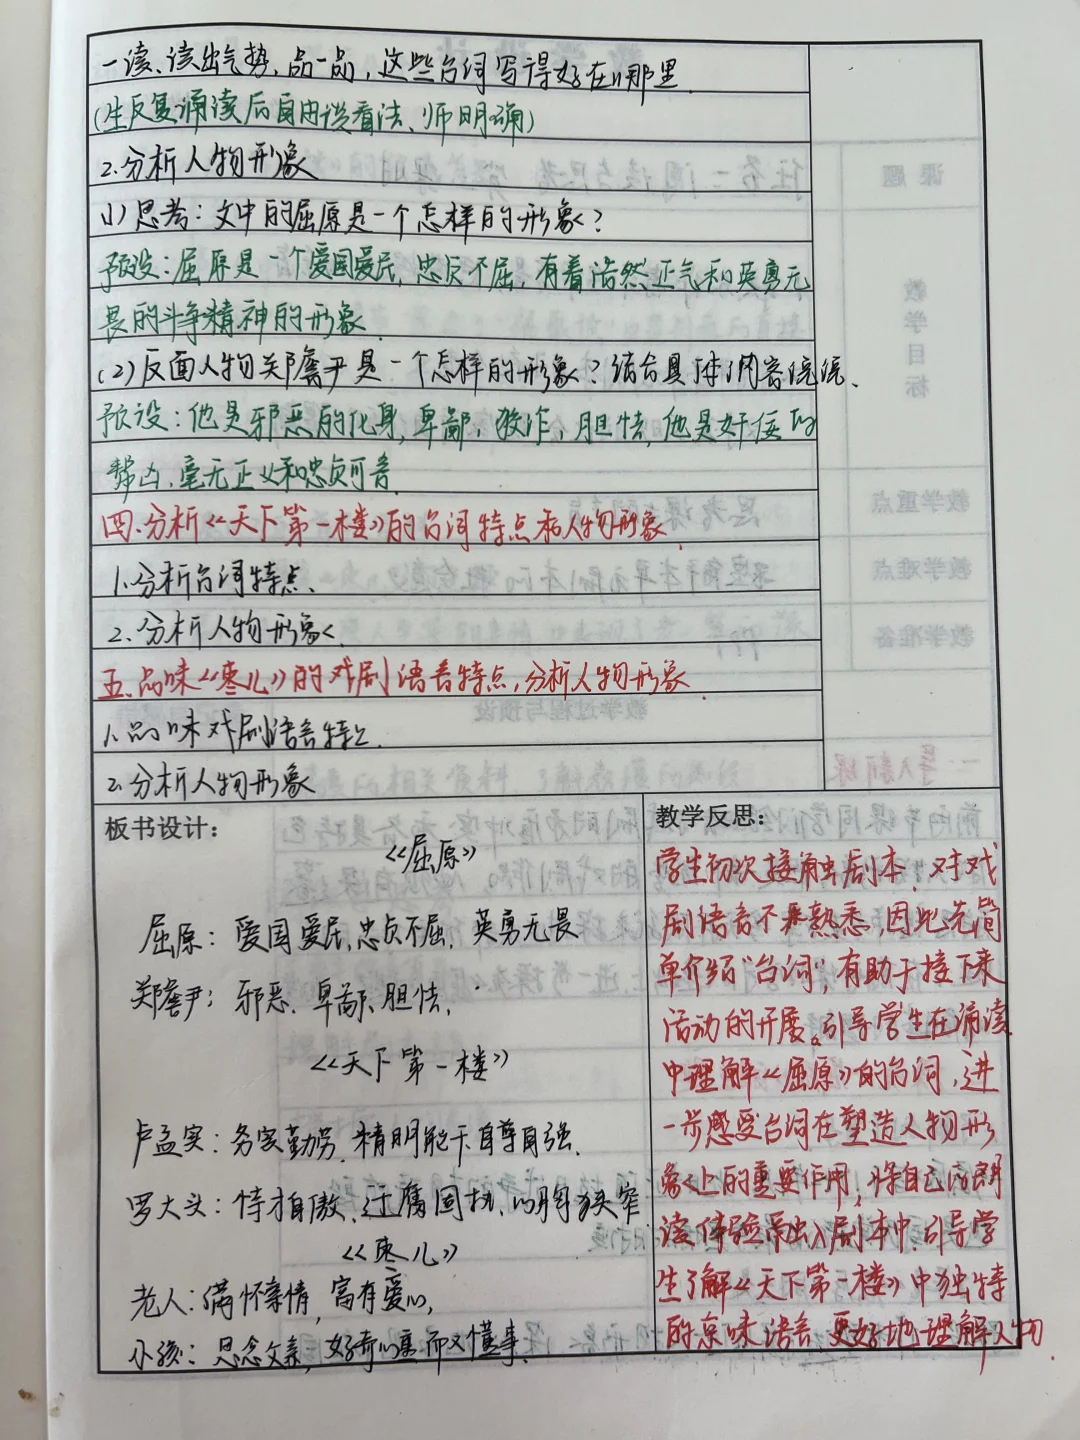 一读、读出气势,品一品,这些台词写得好在哪里
(生反复诵读后自由谈看法、师明确)
2.分析人物形象
(1)思考:文中的屈原是一个怎样的形象?
预设:屈原是一个爱国爱民,忠贞不屈,有着浩然正气和英勇无
畏的斗争精神的形象
(2)反面人物郑詹尹是一个怎样的形象?结合具体内容说说、
预设:他是邪恶的化身,卑鄙,狡诈,胆怯,他是奸佞的
帮凶,毫无正义和忠贞可言
四.分析《天下第一楼》的台词特点和人物形象
1.分析台词特点、
2.分析人物形象
五.品味《枣儿》的戏剧语言特点,分析人物形象
1.品味戏剧语言特点
2.分析人物形象
板书设计:
《屈原》
屈原:爱国爱民,忠贞不屈,英勇无畏
郑詹尹:邪恶、卑鄙、胆怯,
《天下第一楼》
卢孟实:务实勤劳.精明能干.自尊自强.
罗大头:恃才自傲、迂腐固执、心胸狭窄
《枣儿》
老人:满怀亲情,富有爱心,
小孩:思念父亲,好奇心重而又懂事.
教学反思:
学生初次接触剧本,对戏
剧语言不熟悉,因此先简
单介绍“台词”,有助于接下来
活动的开展。引导学生在诵读
中理解《屈原》的台词,进
一步感受台词在塑造人物形
象上的重要作用,将自己的朗
读体验融入剧本中.引导学
生了解《天下第一楼》中独特
的京味语言,更好地理解人物.
课题
教学目标
教学重点
教学难点
教学准备
教学过程与预设